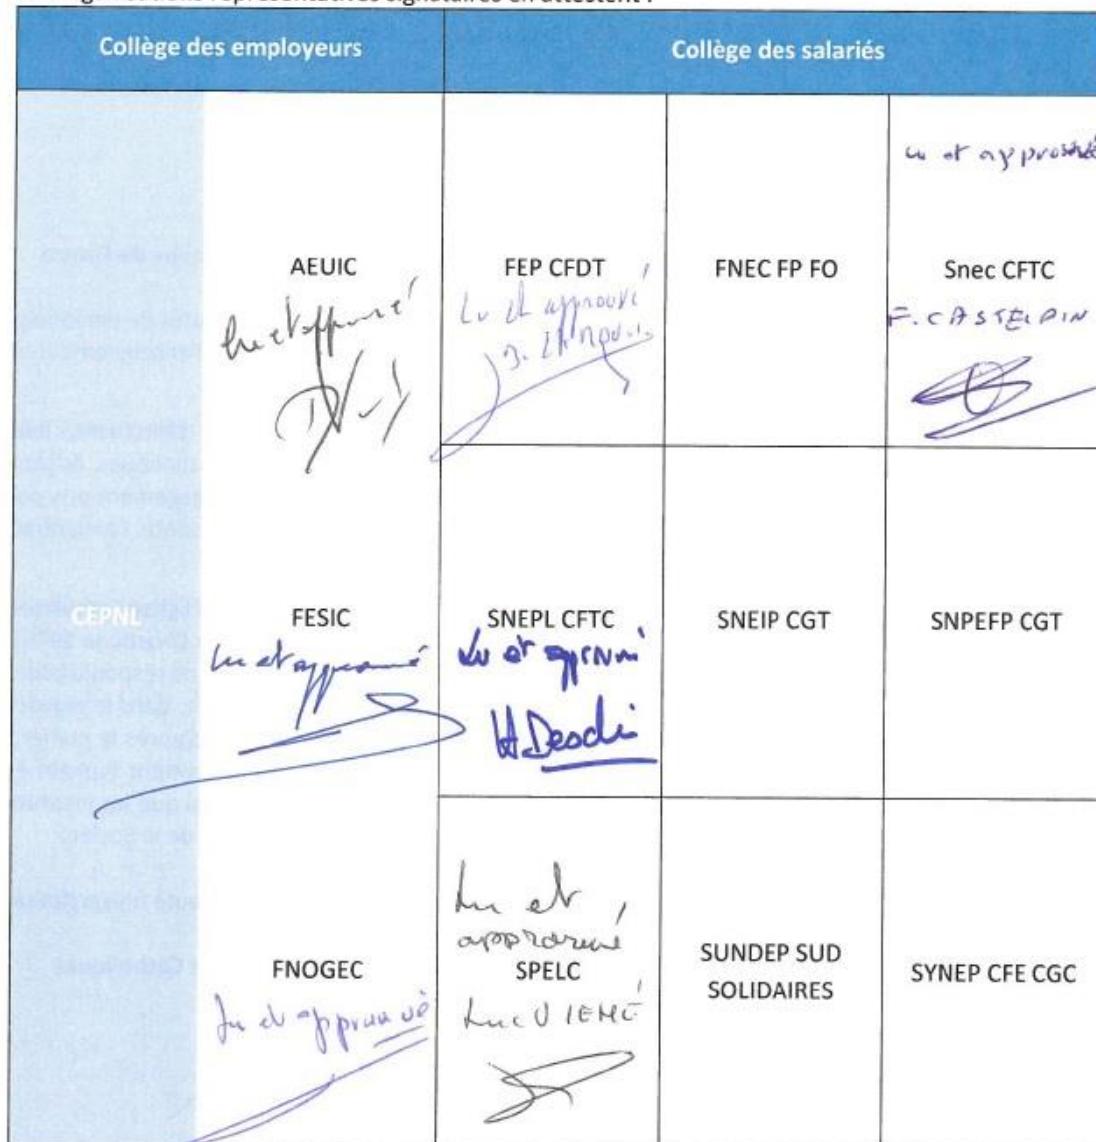 représentatives signataires en attestent :
Collège des employeurs
Collège des salariés
CEPNL
AEUIC
Lu et approuvé
FEP CFDT
Lu et approuvé
FNEC FP FO
Lu et approuvé
Snec CFTC
F. CASTELAIN
FESIC
Lu et approuvé
SNEPL CFTC
Lu et approuvé
SNEIP CGT
SNPEFP CGT
FNOGEC
Lu et approuvé
Lu et
approuvé
SPELC
Luc VIEHÉ
SUNDEP SUD
SOLIDAIRES
SYNEP CFE CGC